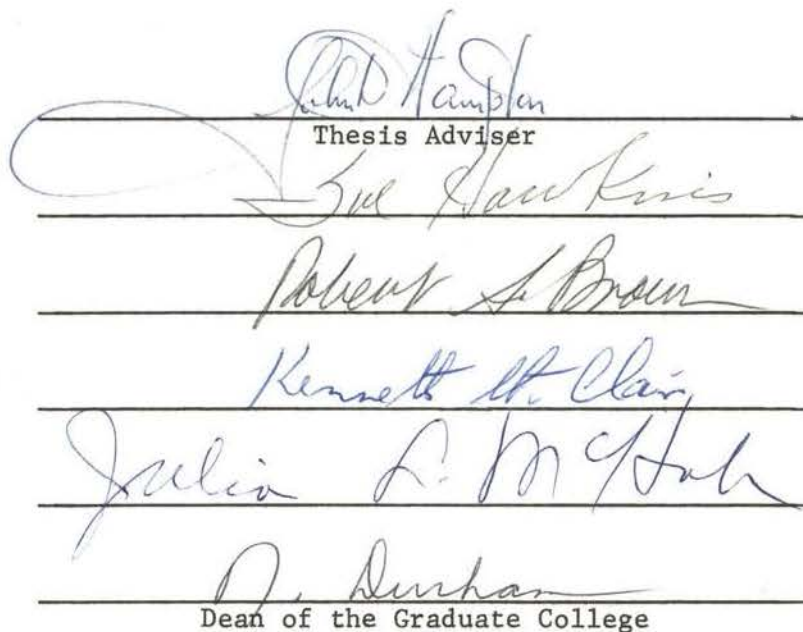 John D Hampton
Thesis Adviser
Sue Hawkins
Robert S. Brown
Kenneth St. Clair
Julia L. McHale
N. Durham
Dean of the Graduate College